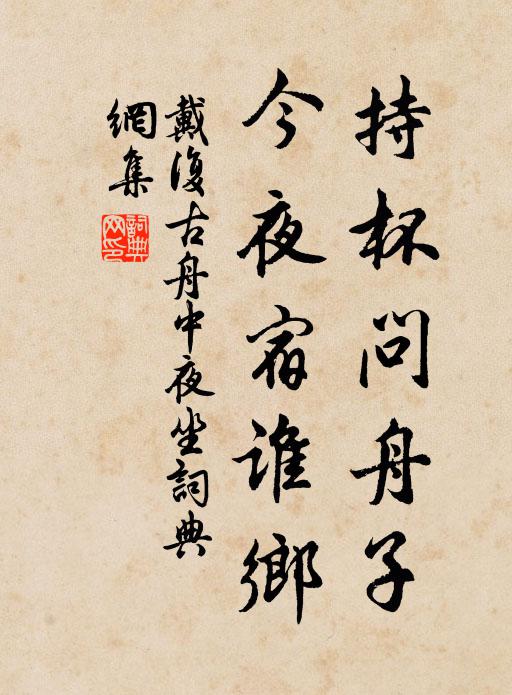 持杯問舟子
今夜宿誰鄉
戴復古舟中夜坐詞典
網集
詞典網印